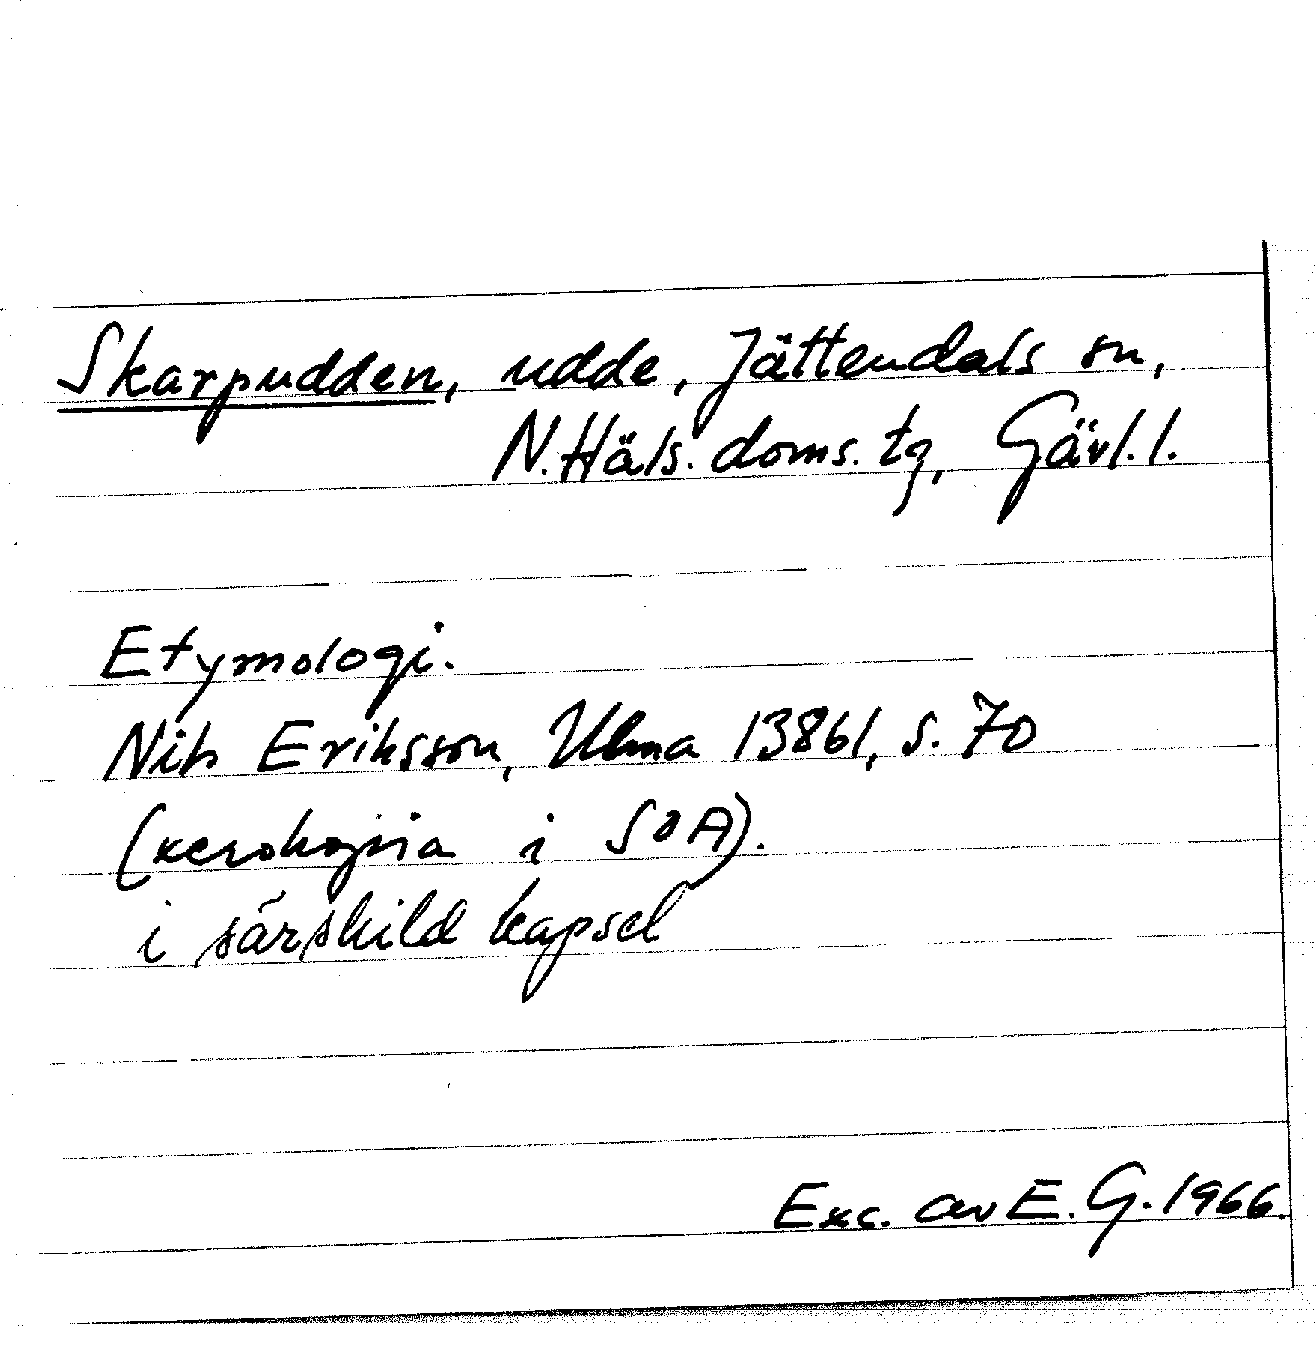 Skarpudden, udde, Jättendals sn,
N. Häls. doms. tg, Gävl. l.
Etymologi.
Nils Eriksson, Ulma 13861, s. 70
(xerokopia i SOA).
i särskild kapsel
Exc. av E. G. 1966.